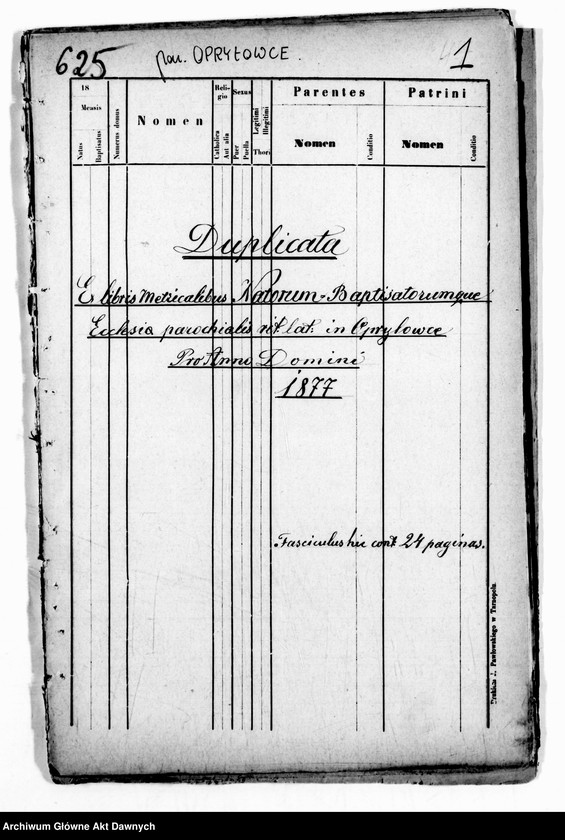 625 par. OPRYŁOWCE. 1
18
Mensis
Natus
Baptisatus
Numerus domus
Nomen
Religio
Catholica
Aut alia
Sexus
Puer
Puella
Legitimi
Illegitimi
Thori
Parentes
Nomen
Conditio
Patrini
Nomen
Conditio
Duplicata
E libris Metricalibus Natorum-Baptisatorumque
Ecclesia parochialis rit. Lat. in Opryłowce
Pro Anno Domini
1877
Fasciculus hic cont. 24 paginas.
Drukiem J. Pawłowskiego w Tarnopolu.
Archiwum Główne Akt Dawnych